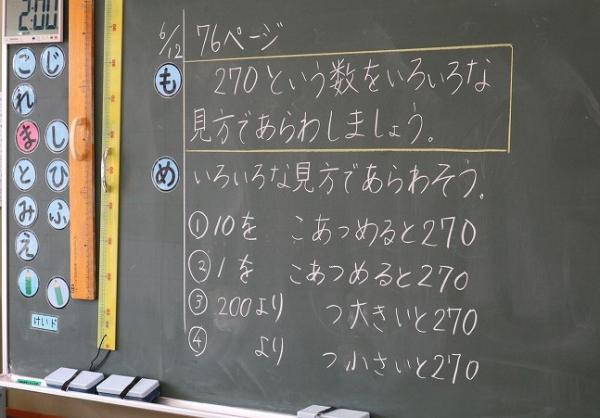 2:00
こ じ
れ
ま し
と ひ
み ふ
え
けいド
6/12
76ページ
も
270という数をいろいろな
見方であらわしましょう。
め
いろいろな見方であらわそう。
①10を こあつめると270
②1を こあつめると270
③200より つ大きいと270
④ より つ小さいと270